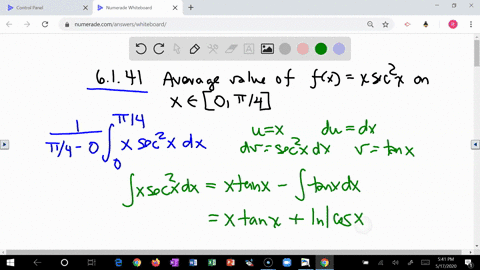 Control Panel
Numerade Whiteboard
numerade.com/answers/whiteboard/
6.1.41 Average value of f(x) = x sec²x on
x ∈ [0, π/4]
1/(π/4 - 0) ∫₀^(π/4) x sec²x dx
u = x du = dx
dv = sec²x dx v = tanx
∫x sec²x dx = x tanx - ∫tanx dx
= x tanx + ln|cosx
5:41 PM
5/17/2020